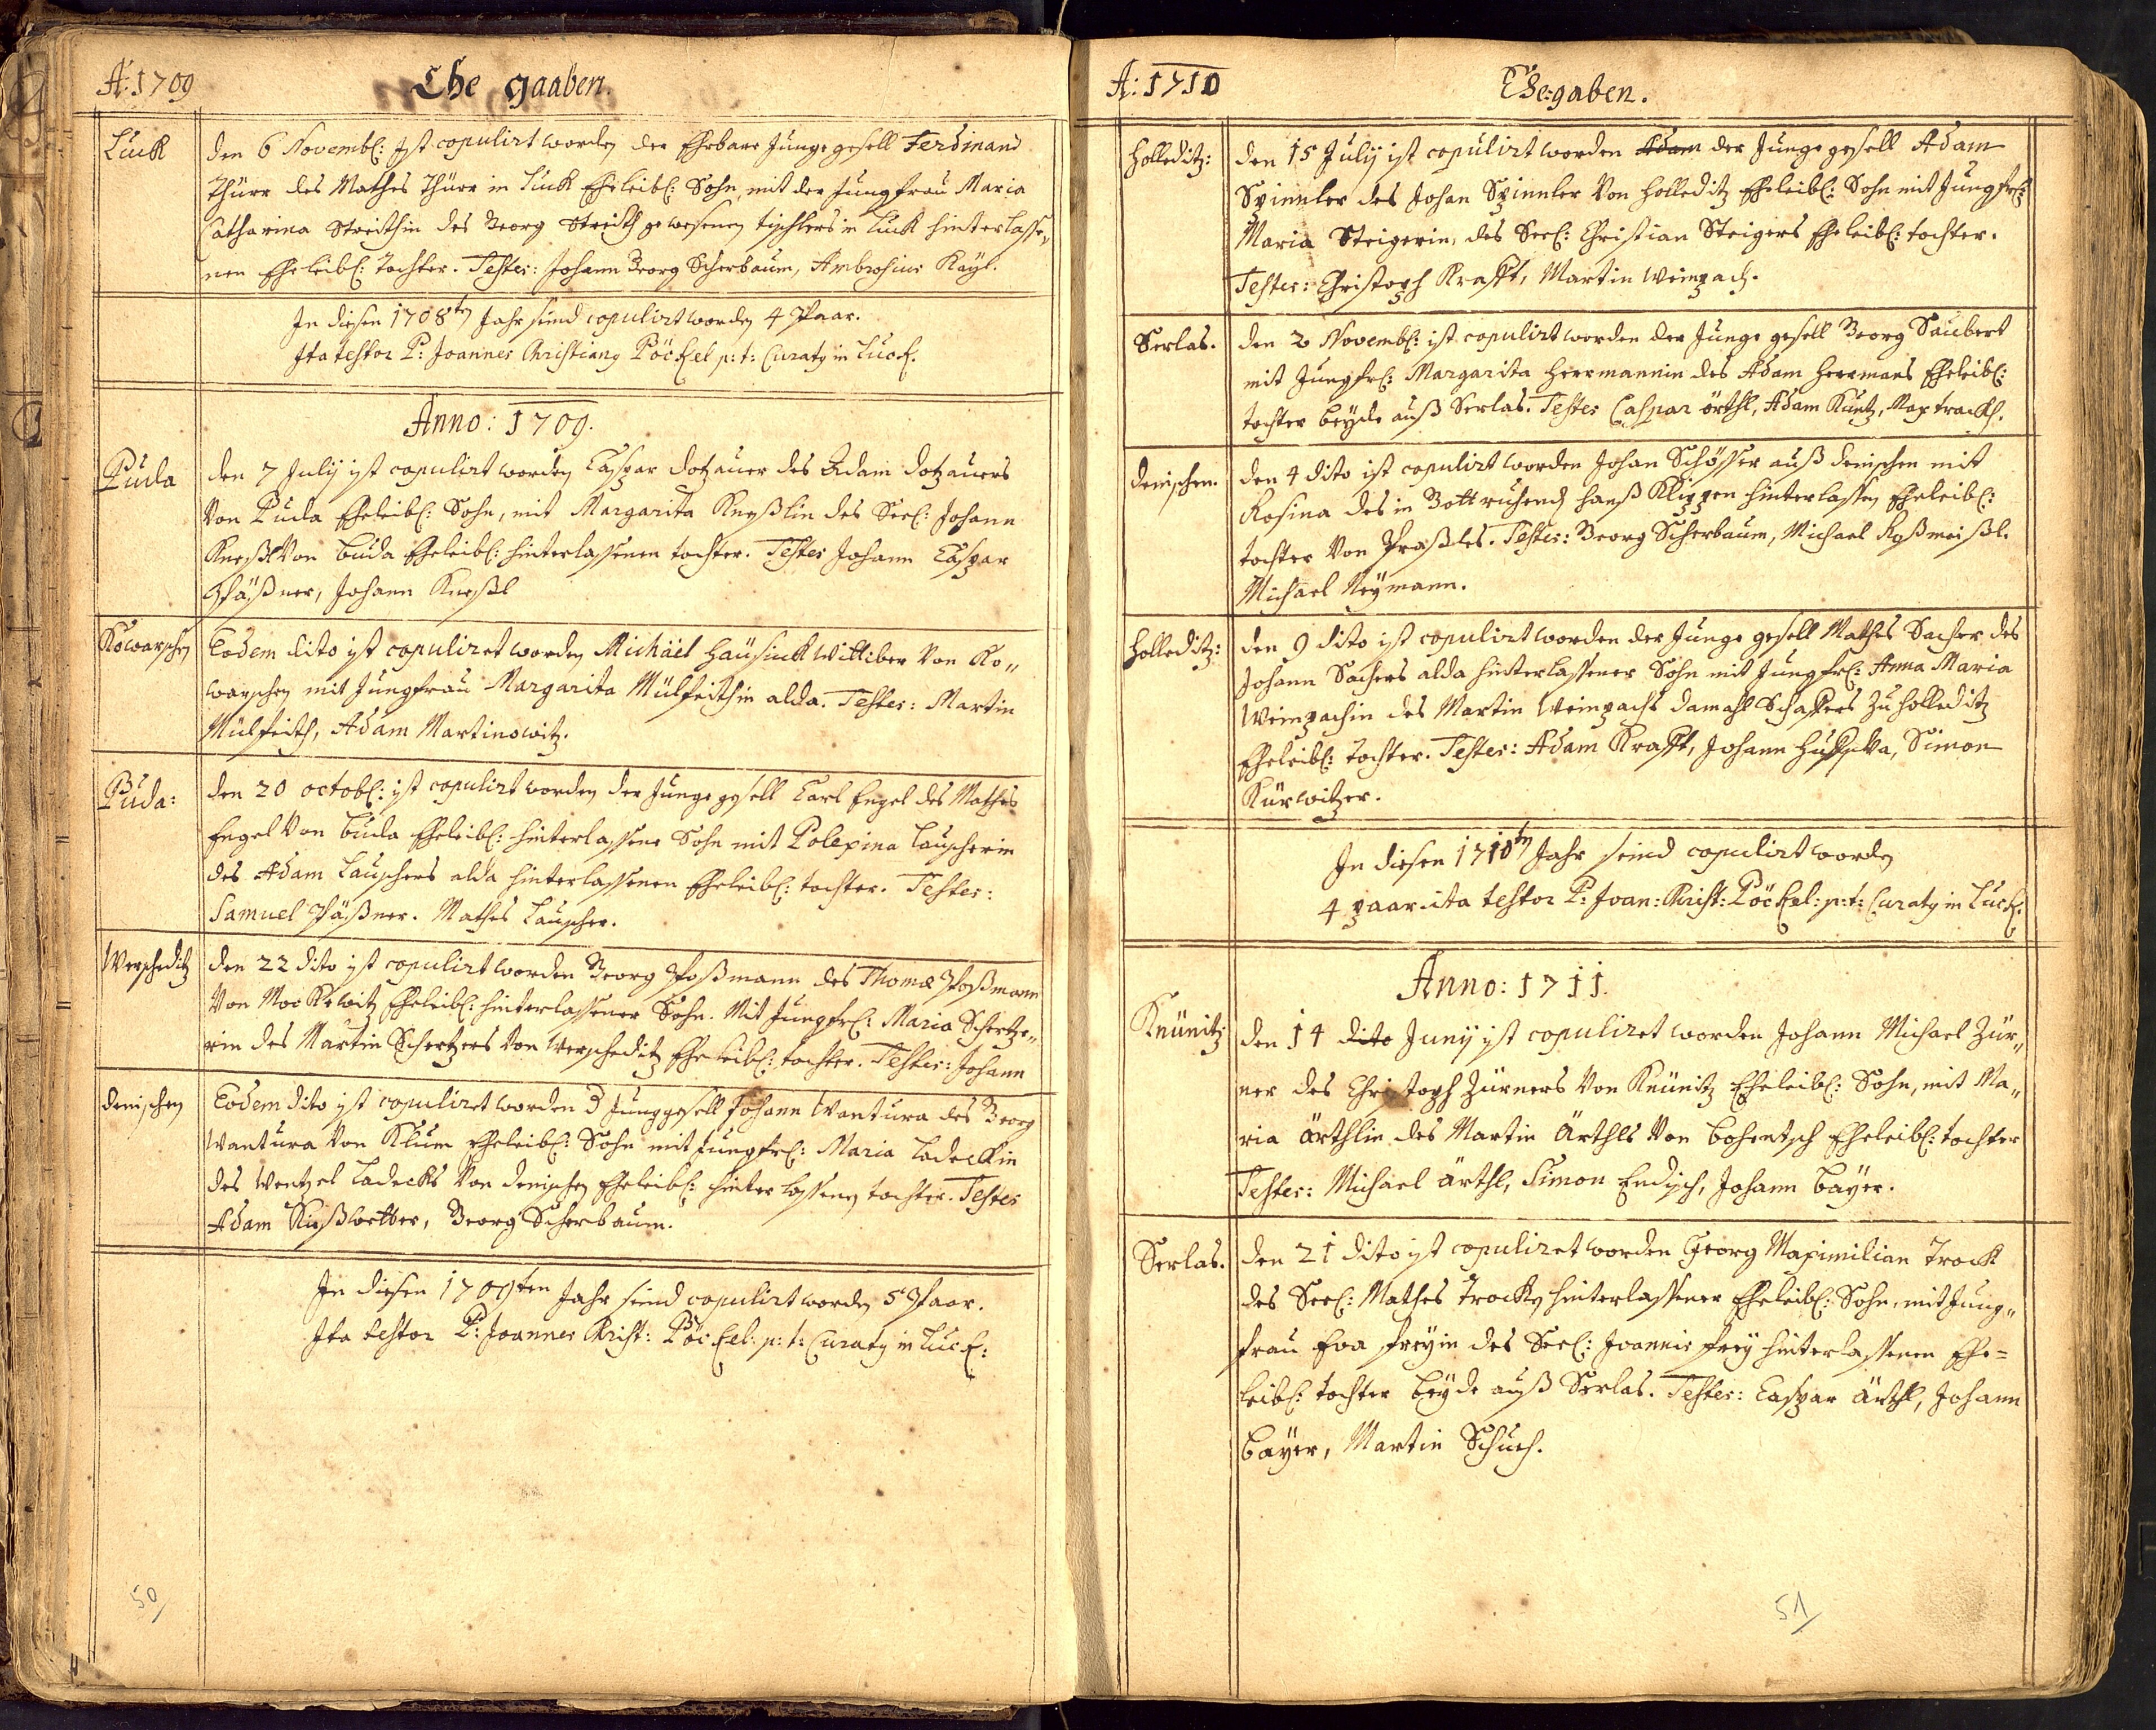 A: 1709
Ehe gaaben.
Luck
den 6 Novembl: Ist copulirt worden der Ehrbare Junge gesell Ferdinand
Thürr des Mathes Thürr in Luck Eheleibl: Sohn, mit der Jungfrau Maria
Catharina Streithin des Georg Streith gewesenen tischlers in Luck hinterlasse„
nen Eheleibl: Tochter. Testes: Johann Georg Scherbaum, Ambrosius Kayl.
In diesen 1708ten Jahr seind copulirt worden 4 Paar.
Ita testor P: Joannes Christiang Pöckel p: t: Curatg in Luck.
Anno: 1709.
Puda
den 7 Julij ist copulirt worden Caspar dotzauer des Adam dotzauers
Von Puda Eheleibl: Sohn, mit Margarita Kneßlin des Seel: Johann
Kneßl Von Buda Eheleibl: hinterlassenen tochter. Testes Johann Caspar
Päßner, Johann Kneßl
Kowarschen
Eodem dito ist copuliret worden Michäel Haüsinck Wittiber Von Ko„
warschen mit Jungfrau Margarita Mülfeithin alda. Testes: Martin
Mülfeith, Adam Martinowitz.
Puda:
den 20 octobl: ist copulirt worden der Junge gesell Carl Engel des Mathes
Engel Von Buda Eheleibl: hinterlassene Sohn mit Polexina Lauscherin
des Adam Lauschers alda hinterlassenen Eheleibl: tochter. Testes:
Samuel Päßner. Mathes Lauscher.
Werscheditz
den 22 dito ist copulirt worden Georg Poßmann des Thomæ Poßmann
Von Mockowitz Eheleibl: hinterlassener Sohn. Mit Jungfrl: Maria Schertze„
rin des Martin Schertzers Von Werscheditz Eheleibl: tochter. Testes: Johann
denischen
Eodem dito ist copuliret worden d Junggesell Johann Wantura des Georg
Wantura Von Klum Eheleibl: Sohn mit Jungfrl: Maria Ladeckin
des Wentzel Ladecks Von denischen Eheleibl: hinterlassenen tochter. Testes
Adam Kießwetter, Georg Scherbaum.
In diesen 1709ten Jahr seind copulirt worden 5 Paar.
Ita testor P: Joannes Krist: Pöckel: p: t: Curatg in Luck:
50
A: 1710
Ehe:gaben.
Holleditz:
den 15 Julij ist copulirt worden Adam der Junge gesell Adam
Spinnler des Johan Spinnler Von Holleditz Eheleibl: Sohn mit Jungfrl:
Maria Steigerin, des Seel: Christian Steigers Eheleibl: tochter.
Testes: Christoph Krafft, Martin Weinpach.
Serlas.
den 2 Novembl: ist copulirt worden der Junge gesell Georg Saubert
mit Jungfrl: Margarita Herrmannin des Adam Herrmans Eheleibl:
tochter beyde auß Serlas. Testes Caspar örthl, Adam Kuntz, Max track.
denischen.
den 4 dito ist copulirt worden Johan Schösser auß denischen mit
Rosina des in Gott ruhend Hanß Klippen hinterlassen Eheleibl:
tochter Von Praßles. Testes: Georg Scherbaum, Michael Roßmeißl.
Michael Neymann.
Holleditz:
den 9 dito ist copulirt worden der Junge gesell Mathes Sacher des
Johann Sachers alda hinterlassener Sohn mit Jungfrl: Anna Maria
Weinpachin des Martin Weinpachs damahl Schaffers zu Holleditz
Eheleibl: tochter. Testes: Adam Krafft, Johann Simon
Kürwitzer.
In diesen 1710ten Jahr seind copulirt worden
4 paar. ita testor P: Joan: Krist: Pöckel: p: t: Curatg in Luck.
Anno: 1711.
Knünitz
den 14 dito Junij ist copuliret worden Johann Michael Zür„
ner des Christoph Zürners Von Knünitz Eheleibl: Sohn, mit Ma„
ria Ärthlin des Martin Ärthls Von Bohentsch Eheleibl: tochter
Testes: Michael Ärthl, Simon Endisch, Johann Bayer.
Serlas.
den 21 dito ist copuliret worden Georg Maximilian Track
des Seel: Mathes Tracks hinterlassener Eheleibl: Sohn, mit Jung„
frau Eva Freyin des Seel: Joannis Frey hinterlassenen Ehe=
leibl: tochter beyde auß Serlas. Testes: Caspar Ärthl, Johann
Bayer, Martin Schuch.
51